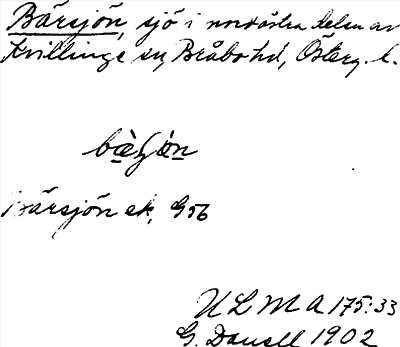 Bärsjön, sjö i nordöstra delen av
Kvillinge sn, Bråbo hd, Österg. l.
Bärsjön ek. G 56
ULMA 175:33
G. Danell 1902